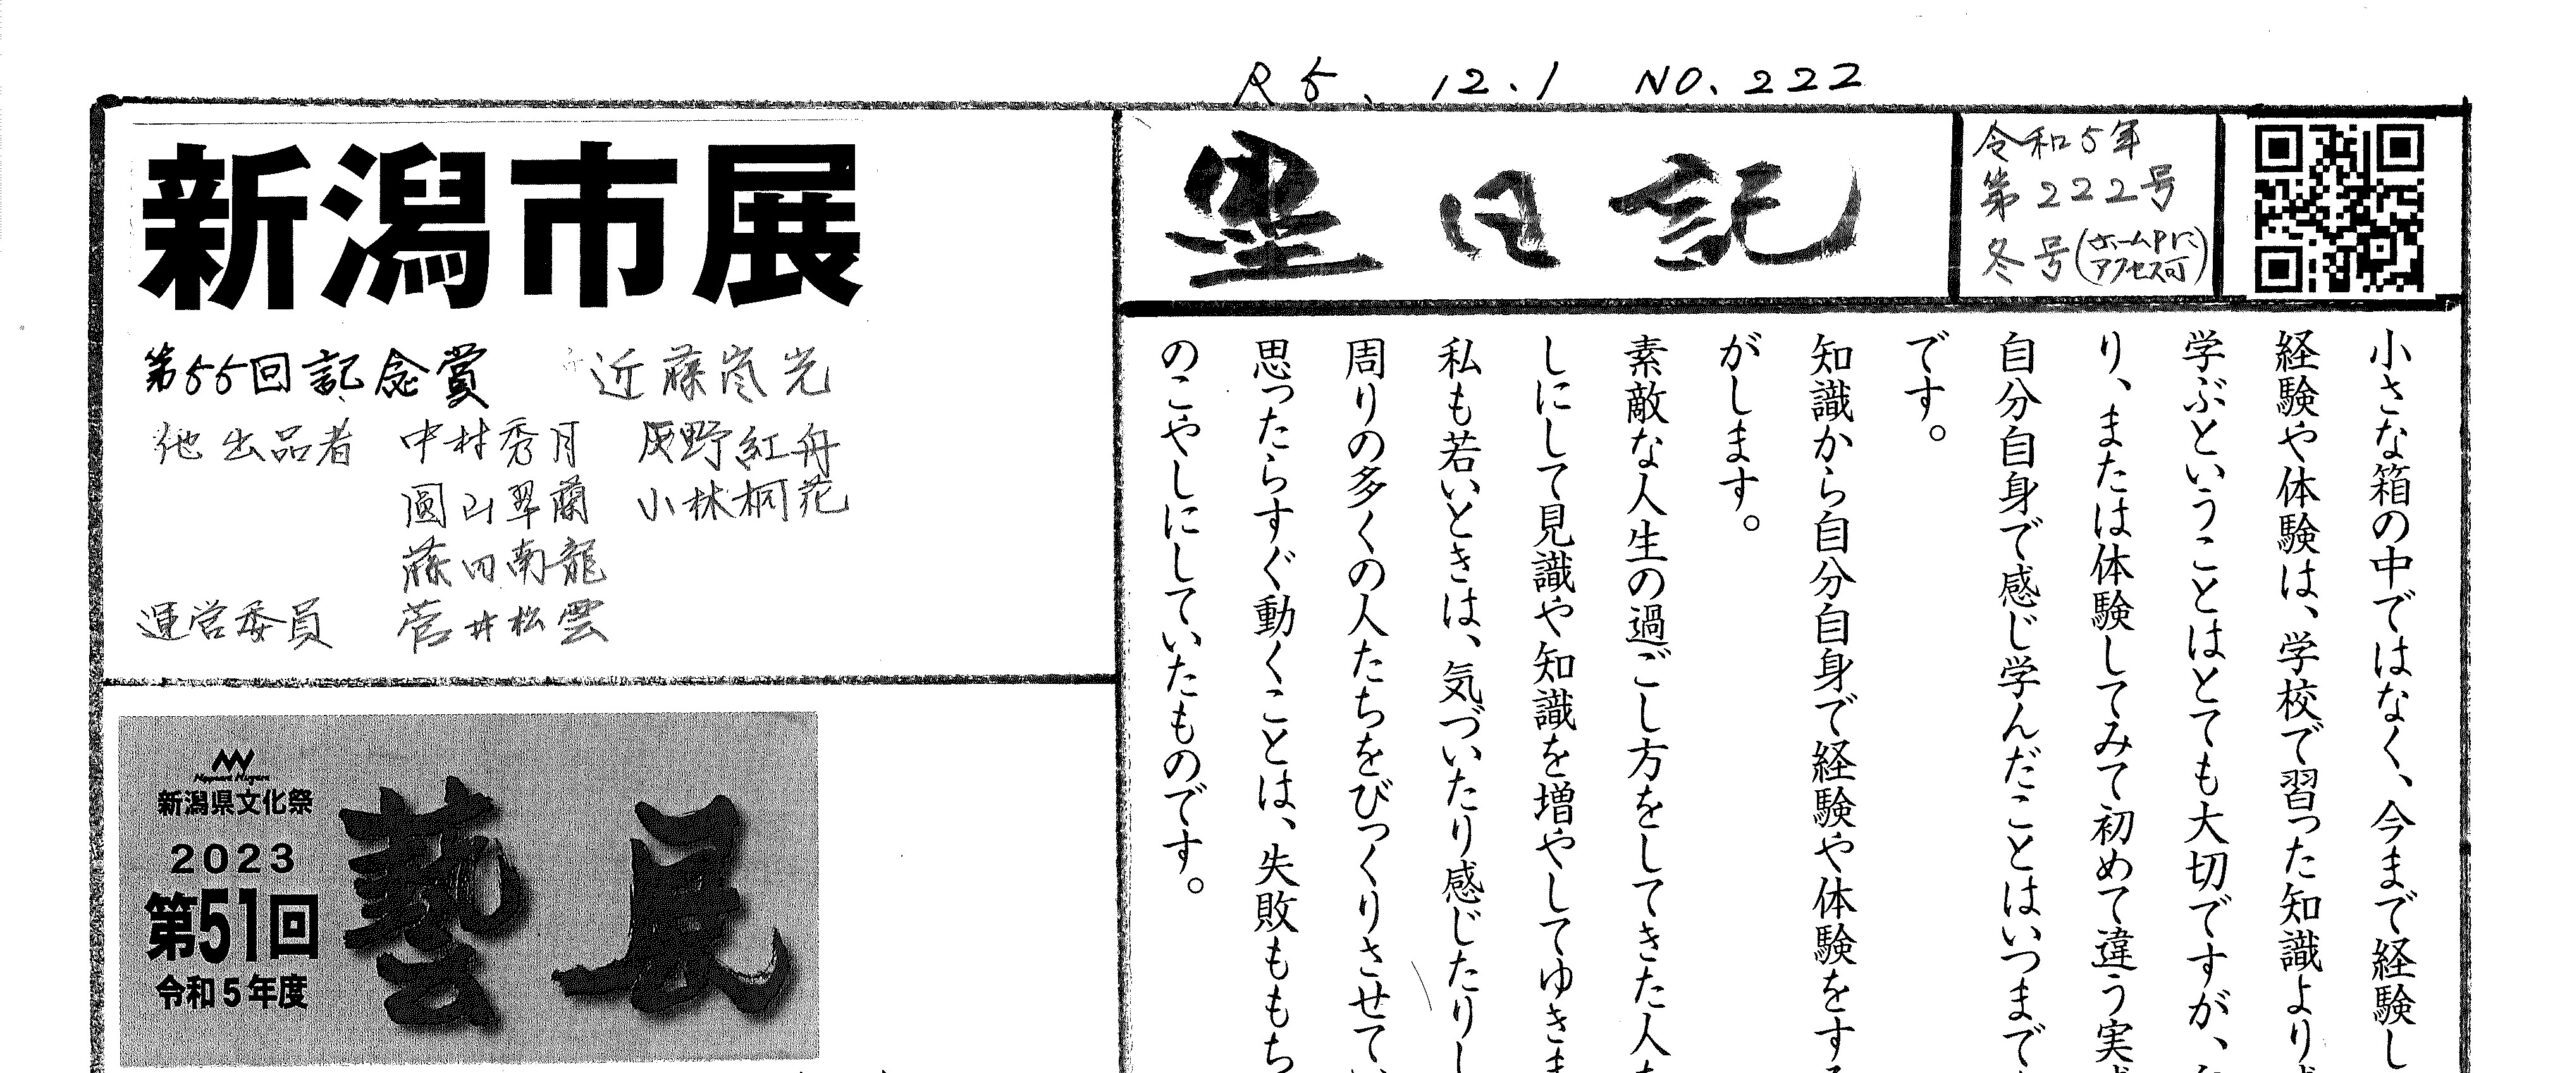 R5.12.1 NO.222
墨日記
令和5年
第222号
冬号(ホームPに
アクセス可)
小さな箱の中ではなく、今まで経験し
経験や体験は、学校で習った知識より
学ぶということはとても大切ですが、
り、または体験してみて初めて違う実
自分自身で感じ学んだことはいつまで
です。
知識から自分自身で経験や体験をす
がします。
素敵な人生の過ごし方をしてきた人
しにして見識や知識を増やしてゆきま
私も若いときは、気づいたり感じたりし
周りの多くの人たちをびっくりさせてい
思ったらすぐ動くことは、失敗ももち
のこやしにしていたものです。
新潟市展
第55回記念賞 近藤嵐光
他出品者 中村秀月 灰野紅舟
圓山翠蘭 小林桐花
藤田南龍
運営委員 菅井松雲
新潟県文化祭
2023
第51回
令和5年度
藝展